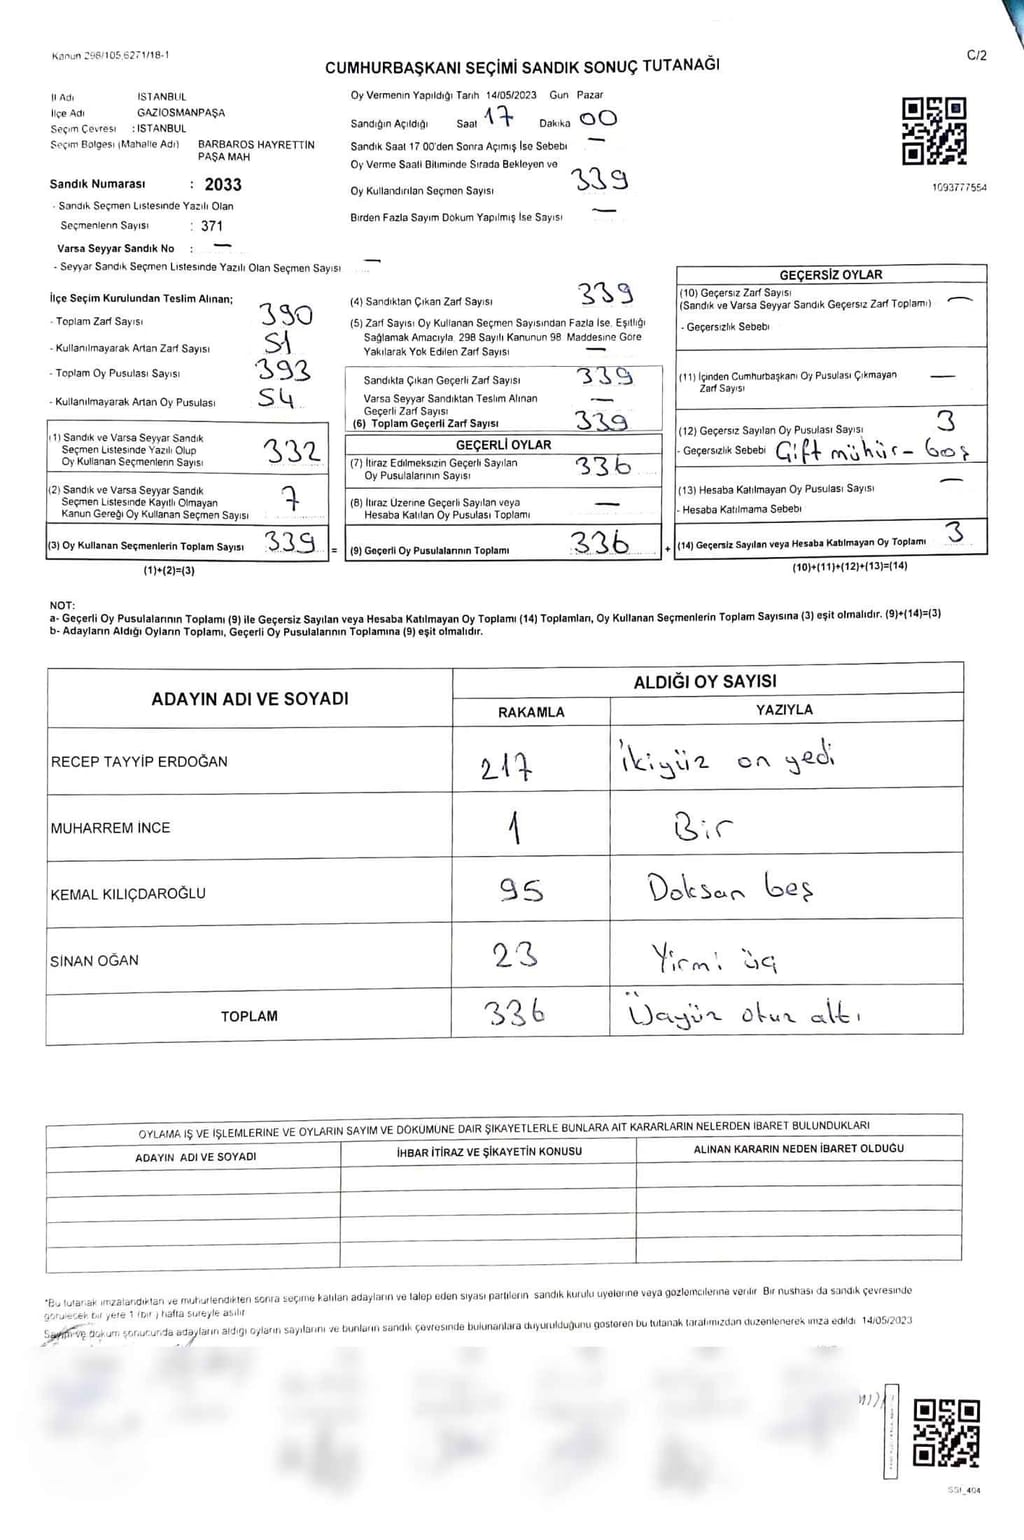 Kanun 298/105,6271/18-1
CUMHURBAŞKANI SEÇİMİ SANDIK SONUÇ TUTANAĞI
C/2
İl Adı İSTANBUL
İlçe Adı GAZİOSMANPAŞA
Seçim Çevresi : İSTANBUL
Seçim Bölgesi (Mahalle Adı) BARBAROS HAYRETTİN
PAŞA MAH
Sandık Numarası : 2033
- Sandık Seçmen Listesinde Yazılı Olan
Seçmenlerin Sayısı : 371
Varsa Seyyar Sandık No : —
- Seyyar Sandık Seçmen Listesinde Yazılı Olan Seçmen Sayısı —
Oy Vermenin Yapıldığı Tarih 14/05/2023 Gün Pazar
Sandığın Açıldığı Saat 17 Dakika 00
Sandık Saat 17 00'den Sonra Açımış İse Sebebi —
Oy Verme Saati Bitiminde Sırada Bekleyen ve
Oy Kullandırılan Seçmen Sayısı 339
Birden Fazla Sayım Döküm Yapılmış İse Sayısı —
1093777554
İlçe Seçim Kurulundan Teslim Alınan;
- Toplam Zarf Sayısı 390
- Kullanılmayarak Artan Zarf Sayısı 51
- Toplam Oy Pusulası Sayısı 393
- Kullanılmayarak Artan Oy Pusulası 54
(1) Sandık ve Varsa Seyyar Sandık
Seçmen Listesinde Yazılı Olup
Oy Kullanan Seçmenlerin Sayısı 332
(2) Sandık ve Varsa Seyyar Sandık
Seçmen Listesinde Kayıtlı Olmayan
Kanun Gereği Oy Kullanan Seçmen Sayısı 7
(3) Oy Kullanan Seçmenlerin Toplam Sayısı 339 =
(1)+(2)=(3)
(4) Sandıktan Çıkan Zarf Sayısı 339
(5) Zarf Sayısı Oy Kullanan Seçmen Sayısından Fazla İse, Eşitliği
Sağlamak Amacıyla, 298 Sayılı Kanunun 98 Maddesine Göre
Yakılarak Yok Edilen Zarf Sayısı —
Sandıkta Çıkan Geçerli Zarf Sayısı 339
Varsa Seyyar Sandıktan Teslim Alınan
Geçerli Zarf Sayısı —
(6) Toplam Geçerli Zarf Sayısı 339
GEÇERLİ OYLAR
(7) İtiraz Edilmeksizin Geçerli Sayılan
Oy Pusulalarının Sayısı 336
(8) İtiraz Üzerine Geçerli Sayılan veya
Hesaba Katılan Oy Pusulası Toplamı —
(9) Geçerli Oy Pusulalarının Toplamı 336 +
GEÇERSİZ OYLAR
(10) Geçersiz Zarf Sayısı
(Sandık ve Varsa Seyyar Sandık Geçersiz Zarf Toplamı) —
- Geçersizlik Sebebi
(11) İçinden Cumhurbaşkanı Oy Pusulası Çıkmayan
Zarf Sayısı —
(12) Geçersiz Sayılan Oy Pusulası Sayısı 3
- Geçersizlik Sebebi Çift mühür - boş
(13) Hesaba Katılmayan Oy Pusulası Sayısı —
- Hesaba Katılmama Sebebi
(14) Geçersiz Sayılan veya Hesaba Katılmayan Oy Toplamı 3
(10)+(11)+(12)+(13)=(14)
NOT:
a- Geçerli Oy Pusulalarının Toplamı (9) ile Geçersiz Sayılan veya Hesaba Katılmayan Oy Toplamı (14) Toplamları, Oy Kullanan Seçmenlerin Toplam Sayısına (3) eşit olmalıdır. (9)+(14)=(3)
b- Adayların Aldığı Oyların Toplamı, Geçerli Oy Pusulalarının Toplamına (9) eşit olmalıdır.
ADAYIN ADI VE SOYADI
ALDIĞI OY SAYISI
RAKAMLA YAZIYLA
RECEP TAYYİP ERDOĞAN 217 ikiyüz on yedi
MUHARREM İNCE 1 Bir
KEMAL KILIÇDAROĞLU 95 Doksan beş
SİNAN OĞAN 23 Yirmi üç
TOPLAM 336 Üçyüz otuz altı
OYLAMA İŞ VE İŞLEMLERİNE VE OYLARIN SAYIM VE DÖKÜMÜNE DAİR ŞİKAYETLERLE BUNLARA AİT KARARLARIN NELERDEN İBARET BULUNDUKLARI
ADAYIN ADI VE SOYADI İHBAR İTİRAZ VE ŞİKAYETİN KONUSU ALINAN KARARIN NEDEN İBARET OLDUĞU
*Bu tutanak imzalandıktan ve mühürlendikten sonra seçime katılan adayların ve talep eden siyasi partilerin sandık kurulu üyelerine veya gözlemcilerine verilir. Bir nüshası da sandık çevresinde
görülecek bir yere 1 (bir) hafta süreyle asılır
Sayım ve döküm sonucunda adayların aldığı oyların sayılarını ve bunların sandık çevresinde bulunanlara duyurulduğunu gösteren bu tutanak tarafımızdan düzenlenerek imza edildi 14/05/2023
SSI_404